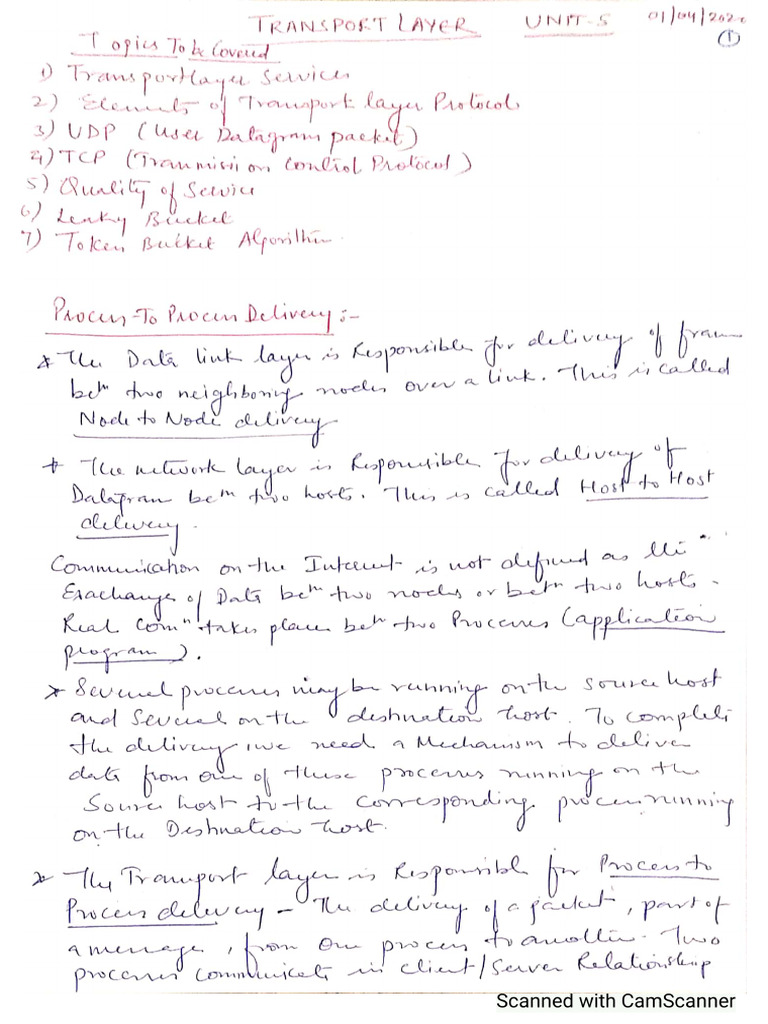 TRANSPORT LAYER UNIT-5 01/04/202
1
Topics To be Covered
1) Transport layer Services
2) Elements of Transport layer Protocols
3) UDP (User Datagram packet)
4) TCP (Tranmission Control Protocol)
5) Quality of Service
6) Leaky Bucket
7) Token Bucket Algorithm.
Process-To Process Delivery:-
* The Data link layer is Responsible for delivery of fram
betn two neighboring nodes over a link. This is called
Node to Node delivery
* The network layer is Responsible for delivery of
Datagram betn two hosts. This is called Host to Host
delivery.
Communication on the Internet is not defined as the
Exachange of Data betn two nodes or betn two hosts.
Real Comn takes place betn two Processes (application
program).
* Several processes may be running on the source host
and several on the destination host. To complete
the delivery, we need a Mechanism to deliver
data from one of these processes running on the
Source host to the corresponding process running
on the Destination host.
* The Transport layer is Responsible for Process to
Process delivery - The delivery of a packet, part of
a message, from one process to another. Two
processes communicate in client/Server Relationship
Scanned with CamScanner